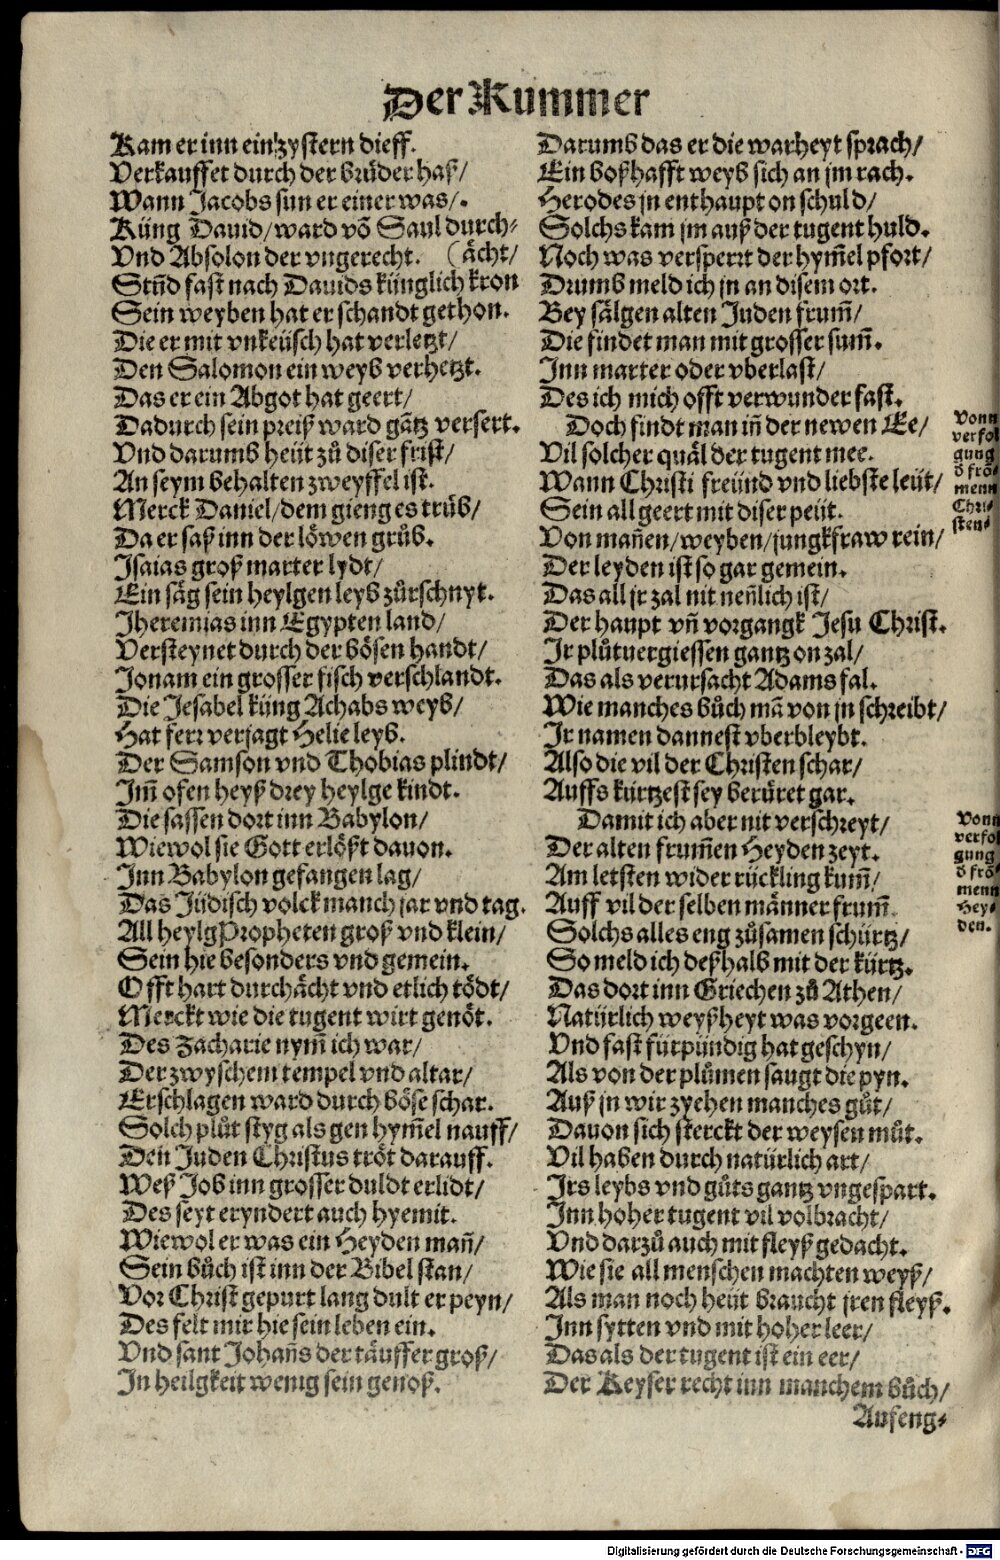 Der Kummer
Kam er inn ein zystern dieff.
Verkauffet durch der brüder haß/
Wann Jacobs sun er einer was/.
Küng Dauid/ward võ Saul durch-
Vnd Absolon der vngerecht. (ächt/
Stũd fast nach Dauids künglich kron
Sein weyben hat er schandt gethon.
Die er mit vnkeüsch hat verletzt/
Den Salomon ein weyb verhetzt.
Das er ein Abgot hat geert/
Dadurch sein preiß ward gãtz versert.
Vnd darumb heüt zů diser frist/
An seym behalten zweyffel ist.
Merck Daniel/dem gieng es trüb/
Da er saß inn der löwen grůb.
Isaias groß marter lydt/
Ein säg sein heylgen leyb zůrschnyt.
Jheremias inn Egypten land/
Versteynet durch der bösen handt/
Jonam ein grosser fisch verschlandt.
Die Jesabel küng Achabs weyb/
Hat ferr verjagt Helie leyb.
Der Samson vnd Thobias plindt/
Im̃ ofen heyß drey heylge kindt.
Die sassen dort inn Babylon/
Wiewol sie Gott erlößt dauon.
Inn Babylon gefangen lag/
Das Jüdisch volck manch jar vnd tag.
All heylg Propheten groß vnd klein/
Sein hie besonders vnd gemein.
Offt hart durchächt vnd etlich tödt/
Merckt wie die tugent wirt genöt.
Des Zacharie nym̃ ich war/
Der zwyschem tempel vnd altar/
Erschlagen ward durch böse schar.
Solch plůt styg als gen hym̃el nauff/
Den Juden Christus tröt darauff.
Weß Job inn grosser duldt erlidt/
Des seyt eryndert auch hyemit.
Wiewol er was ein Heyden mañ/
Sein bůch ist inn der Bibel stan/
Vor Christ gepurt lang dult er peyn/
Des felt mir hie sein leben ein.
Vnd sant Johañs der täuffer groß/
In heilgkeit wenig sein genoß.
Darumb das er die warheyt sprach/
Ein boßhafft weyb sich an jm rach.
Herodes jn enthaupt on schuld/
Solchs kam jm auß der tugent huld.
Noch was versperrt der hym̃el pfort/
Drumb meld ich jn an disem ort.
Bey sälgen alten Juden frum̃/
Die findet man mit grosser sum̃.
Inn marter oder vberlast/
Des ich mich offt verwunder fast.
Doch findt man iñ der newen Ee/
Vil solcher quäl der tugent mee.
Wann Christi freünd vnd liebste leüt/
Sein all geert mit diser peüt.
Von mañen/weyben/jungkfraw rein/
Der leyden ist so gar gemein.
Das all jr zal nit neñlich ist/
Der haupt vñ vorgangk Jesu Christ.
Jr plůtuergiessen gantz on zal/
Das als verursacht Adams fal.
Wie manches bůch mã von jn schreibt/
Jr namen dannest vberbleybt.
Also die vil der Christen schar/
Auffs kürtzest sey berüret gar.
Damit ich aber nit verschreyt/
Der alten frum̃en Heyden zeyt.
Am letsten wider rückling kum̃/
Auff vil der selben männer frum̃.
Solchs alles eng zůsamen schürtz/
So meld ich deßhalb mit der kürtz.
Das dort inn Griechen zů Athen/
Natürlich weyßheyt was vorgeen.
Vnd fast fürpündig hat geschyn/
Als von der plůmen saugt die pyn.
Auß jn wir zyehen manches gůt/
Dauon sich sterckt der weysen můt.
Vil haben durch natürlich art/
Irs leybs vnd gůts gantz vngespart.
Inn hoher tugent vil volbracht/
Vnd darzů auch mit fleyß gedacht.
Wie sie all menschen machten weyß/
Als man noch heüt braucht jren fleyß.
Inn sytten vnd mit hoher leer/
Das als der tugent ist ein eer/
Der Keyser recht inn manchem bůch/
Anfeng-
Vonn
verfol
gung
d̃ frõ-
menn
Chri-
sten-
Vonn
verfol
gung
d̃ frõ-
menn
Hey-
den.
Digitalisierung gefördert durch die Deutsche Forschungsgemeinschaft - DFG